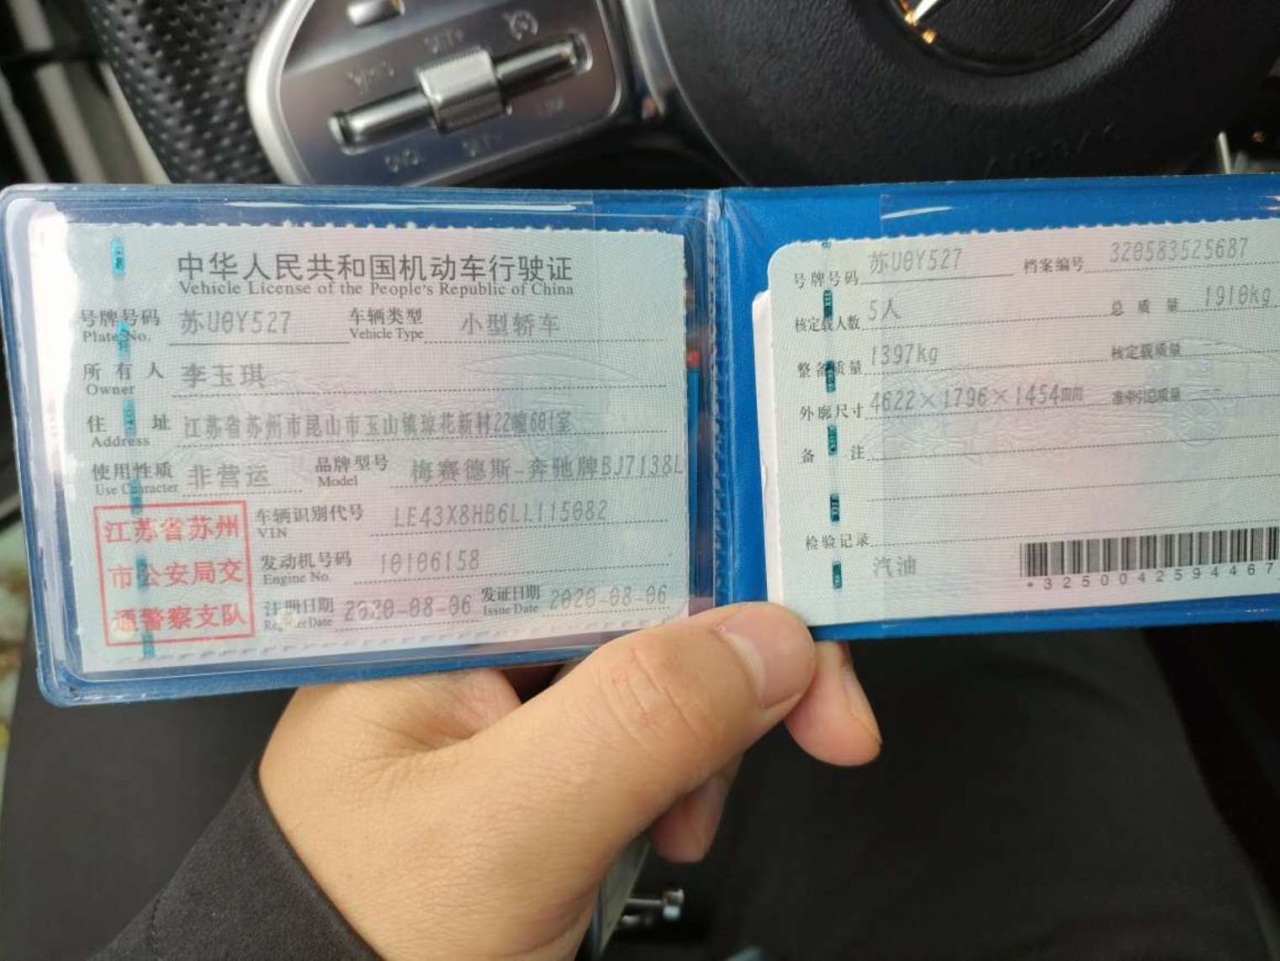 中华人民共和国机动车行驶证
Vehicle License of the People's Republic of China
号牌号码 苏U0Y527 车辆类型 小型轿车
Plate No. Vehicle Type
所有人 李玉琪
Owner
住址 江苏省苏州市昆山市玉山镇琼花新村22幢601室
Address
使用性质 非营运 品牌型号 梅赛德斯-奔驰牌BJ7138L
Use Character Model
江苏省苏州
市公安局交
通警察支队
车辆识别代号 LE43X8HB6LL115082
VIN
发动机号码 10106158
Engine No.
注册日期 2020-08-06 发证日期 2020-08-06
Register Date Issue Date
号牌号码 苏U0Y527 档案编号 320583525687
核定载人数 5人 总质量 1910kg
整备质量 1397kg 核定载质量 --
外廓尺寸 4622×1796×1454mm 准牵引总质量 --
备注
检验记录
汽油
*3250042594467